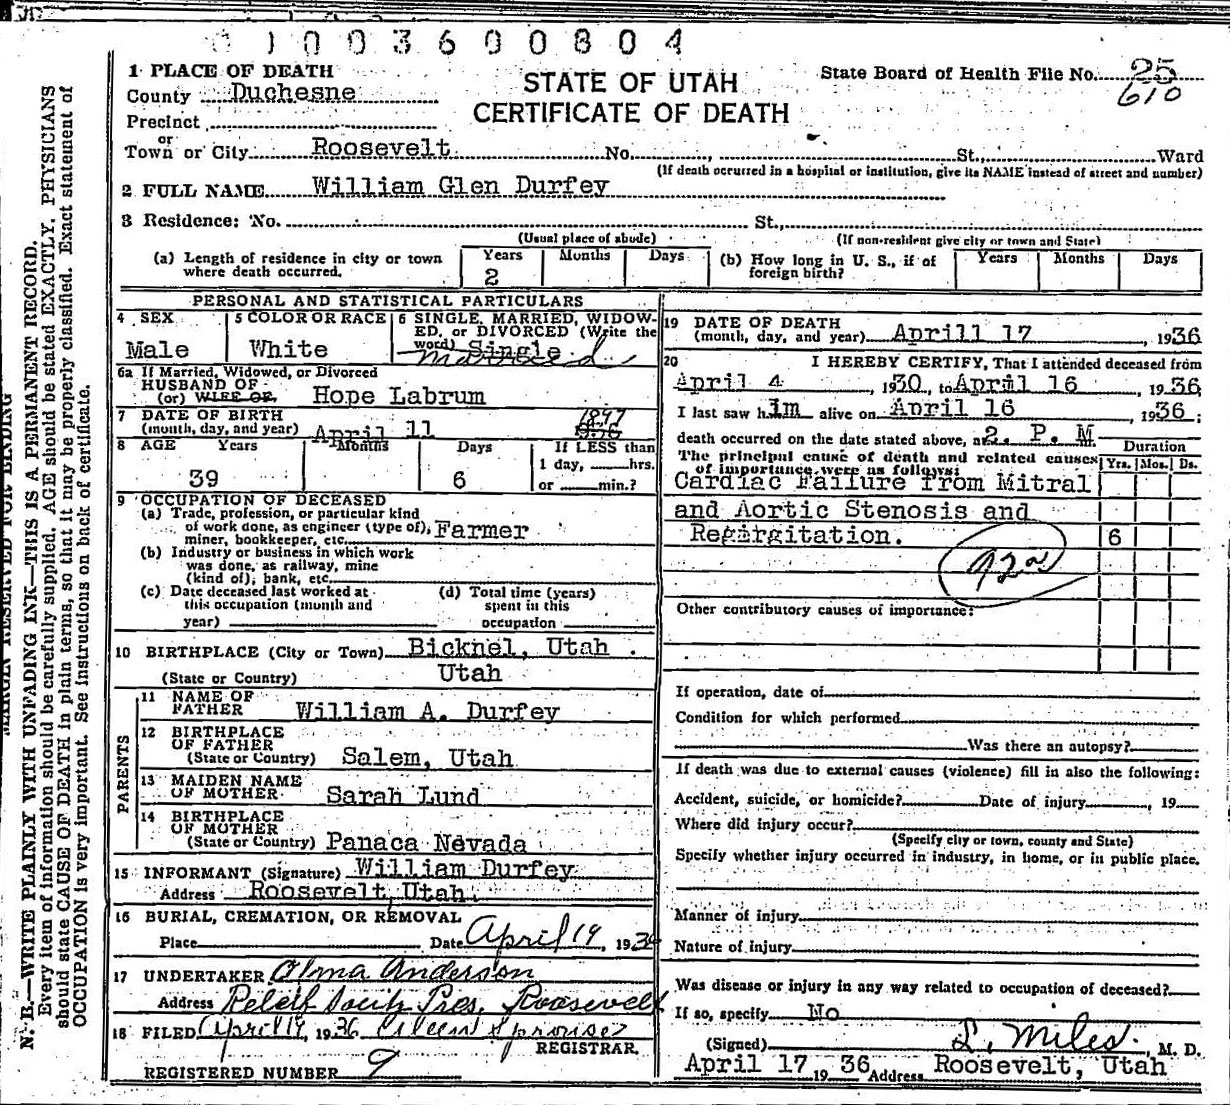 0 1 0 0 3 6 0 0 8 0 4
1 PLACE OF DEATH
STATE OF UTAH
CERTIFICATE OF DEATH
State Board of Health File No. 25
610
County Duchesne
Precinct
or
Town or City Roosevelt No. , St., Ward
(If death occurred in a hospital or institution, give its NAME instead of street and number)
2 FULL NAME William Glen Durfey
3 Residence: No. St.,
(Usual place of abode) (If non-resident give city or town and State)
(a) Length of residence in city or town where death occurred. Years 2 Months Days
(b) How long in U. S., if of foreign birth? Years Months Days
PERSONAL AND STATISTICAL PARTICULARS
4 SEX
Male
5 COLOR OR RACE
White
6 SINGLE, MARRIED, WIDOW-
ED, or DIVORCED (Write the
word) Single
Married
6a If Married, Widowed, or Divorced
HUSBAND OF
(or) WIFE OF Hope Labrum
7 DATE OF BIRTH
(month, day, and year) April 11 1897
8 AGE Years Months Days If LESS than
1 day, hrs.
39 6 or min.?
9 OCCUPATION OF DECEASED
(a) Trade, profession, or particular kind
of work done, as engineer (type of),
miner, bookkeeper, etc. Farmer
(b) Industry or business in which work
was done, as railway, mine
(kind of), bank, etc.
(c) Date deceased last worked at
this occupation (month and
year)
(d) Total time (years)
spent in this
occupation
10 BIRTHPLACE (City or Town) Bicknel, Utah .
(State or Country) Utah
PARENTS
11 NAME OF
FATHER William A. Durfey
12 BIRTHPLACE
OF FATHER
(State or Country) Salem, Utah
13 MAIDEN NAME
OF MOTHER Sarah Lund
14 BIRTHPLACE
OF MOTHER
(State or Country) Panaca Nevada
15 INFORMANT (Signature) William Durfey
Address Roosevelt, Utah.
16 BURIAL, CREMATION, OR REMOVAL
Place Date April 19, 1936
17 UNDERTAKER Olma Anderson
Address Releif Pres. Roosevelt
18 FILED April 19, 1936 Eileen
REGISTRAR.
REGISTERED NUMBER 9
19 DATE OF DEATH
(month, day, and year) Aprill 17 , 1936
20 I HEREBY CERTIFY, That I attended deceased from
April 4 , 1930, to April 16 1936
I last saw him alive on April 16 , 1936;
death occurred on the date stated above, at 2. P. M.
The principal cause of death and related causes
of importance were as follows:
Duration
Yrs. Mos. Ds.
Cardiac Failure from Mitral
and Aortic Stenosis and
Regirgitation. 6
92a
Other contributory causes of importance:
If operation, date of
Condition for which performed
Was there an autopsy?
If death was due to external causes (violence) fill in also the following:
Accident, suicide, or homicide? Date of injury , 19
Where did injury occur?
(Specify city or town, county and State)
Specify whether injury occurred in industry, in home, or in public place.
Manner of injury
Nature of injury
Was disease or injury in any way related to occupation of deceased?
If so, specify No
(Signed) L. Miles. , M. D.
April 17 19 36 Address Roosevelt, Utah
MARGIN RESERVED FOR BINDING
N. B.—WRITE PLAINLY WITH UNFADING INK—THIS IS A PERMANENT RECORD.
Every item of information should be carefully supplied. AGE should be stated EXACTLY. PHYSICIANS
should state CAUSE OF DEATH in plain terms, so that it may be properly classified. Exact statement of
OCCUPATION is very important. See instructions on back of certificate.